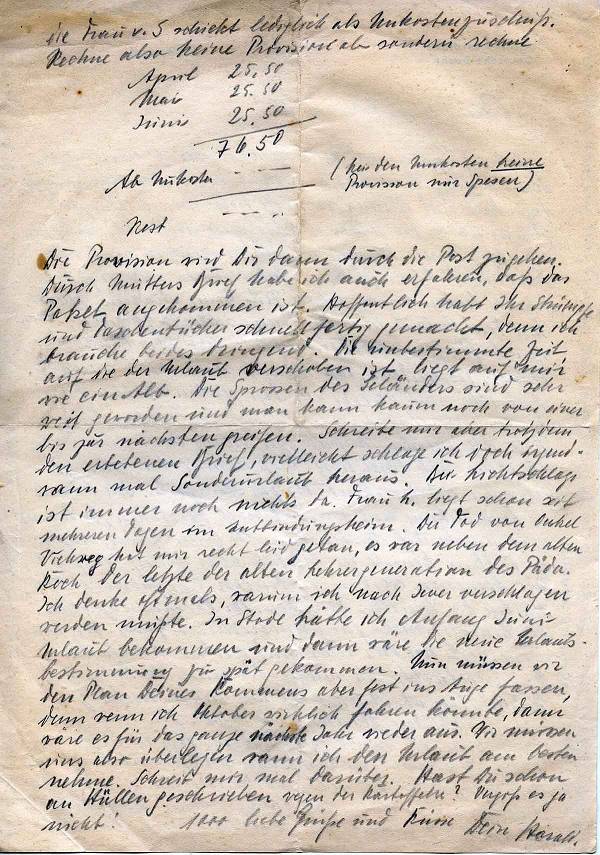 die Frau v. S schickt lediglich als Unkostenzuschuß.
Rechne also keine Provision ab sondern rechne
April 25,50
Mai 25.50
Juni 25.50
76.50
Ab Unkosten — —
(Bei den Unkosten keine
Provision nur Spesen)
Rest
Die Provision wird Dir dann durch die Post zugehen.
Durch Mutters Brief habe ich auch erfahren, daß das
Paket angekommen ist. Hoffentlich habt Ihr Strümpfe
und Taschentücher schnell fertig gemacht, denn ich
brauche beides dringend. Die unbestimmte Zeit,
auf die der Urlaub verschoben ist, liegt auf mir
wie ein Alb. Die Sprossen des Geländers sind sehr
weit geworden und man kann kaum noch von einer
bis zur nächsten greifen. Schreibe mir aber trotzdem
den erbetenen Brief, vielleicht schlage ich doch irgend-
wann mal Sonderurlaub heraus. Bei
ist immer noch nichts da. Frau K. liegt schon seit
mehreren Tagen im Entbindungsheim. Der Tod von Onkel
Viehweg hat mir recht leid getan, es war neben dem alten
Koch der letzte der alten Lehrergeneration des Päda.
Ich denke oftmals, warum ich nach Jever verschlagen
werden mußte. In Stade hätte ich Anfang Juni
Urlaub bekommen und dann wäre die neue Urlaubs-
bestimmung zu spät gekommen. Nun müssen wir
den Plan Deines Kommens aber fest ins Auge fassen,
denn wenn ich Oktober wirklich fahren könnte, dann
wäre es für das ganze nächste Jahr wieder aus. Wir müssen
uns also überlegen wann ich den Urlaub am besten
nehme. Schreib mir mal darüber. Hast Du schon
an Hüllen geschrieben wegen der Kartoffeln? Vergiß es ja
nicht! 1000 liebe Grüße und Küsse Dein Harald.